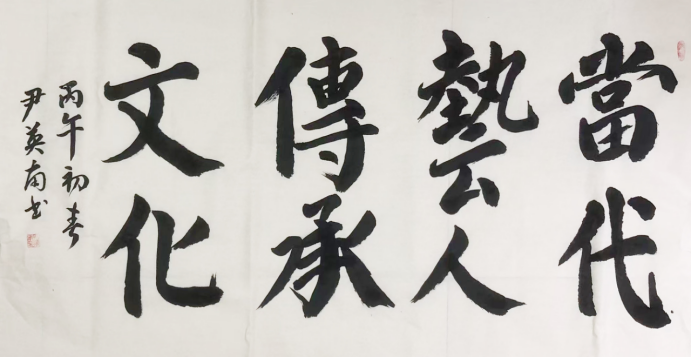 當代
藝人
傳承
文化
丙午初春
尹英南书